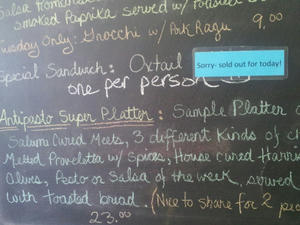 Salsa Homemade
Smoked Paprika served w/ Toasted
Tuesday Only: Gnocchi w/ Pork Ragu 9.00
Special Sandwich: Oxtail
Sorry- sold out for today!
one per person
Antipasto Super Platter: Sample Platter o
Salumi Cured Meats, 3 different Kinds of c
Melted Provoletta w/ Spices, House cured
Olives, Pesto or Salsa of the week, served
with toasted bread. (Nice to share for 2 peo
23.00